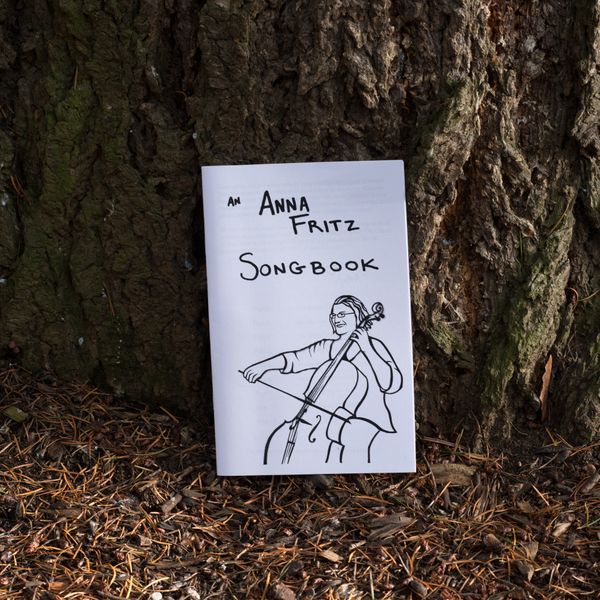 AN ANNA
FRITZ
SONGBOOK